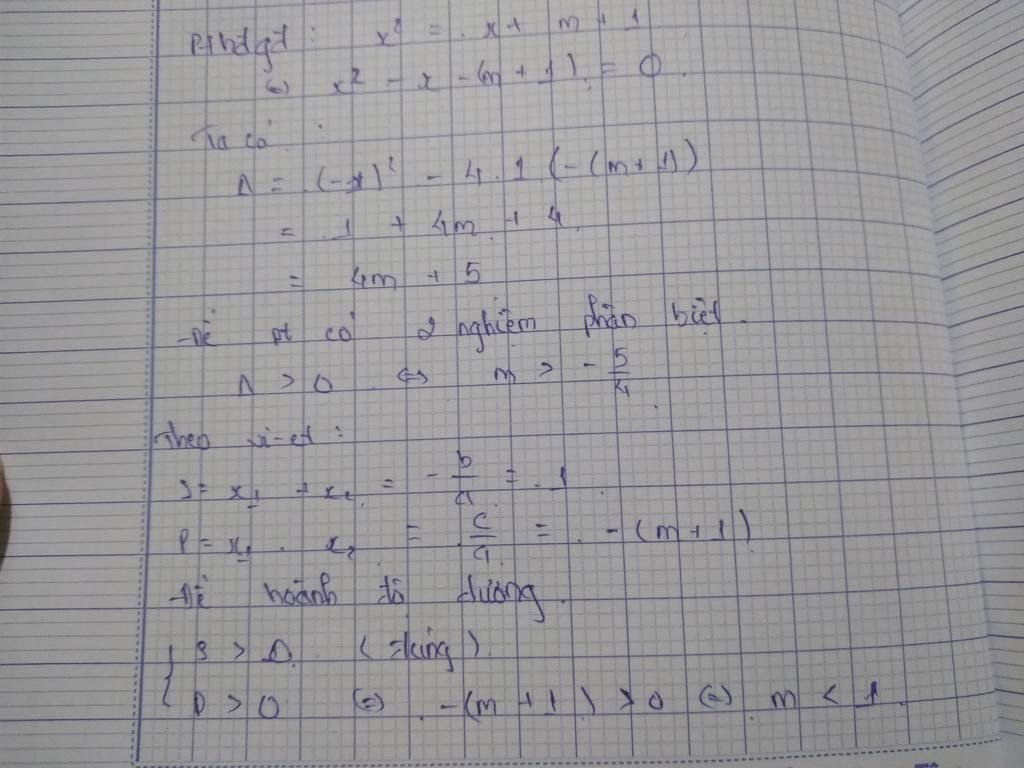 Pthđgđ : x² = x + m + 1
(=) x² - x - (m + 1) = 0.
Ta có :
Δ = (-1)² - 4.1 (-(m + 1))
= 1 + 4m + 4
= 4m + 5
-Để pt có 2 nghiệm phân biệt.
Δ > 0 <=> m > - 5/4.
Theo vi-et :
S = x₁ + x₂ = - b/a = 1.
P = x₁ . x₂ = c/a = - (m + 1)
-Để hoành độ dương.
{ S > 0
P > 0 (=) -(m + 1) > 0 (=) m < 1.